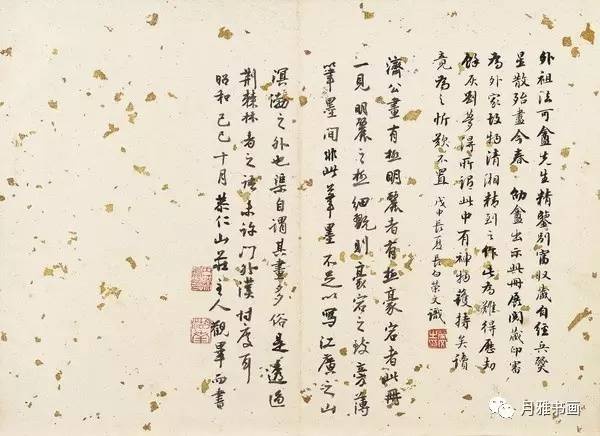 外祖法可盦先生精鉴别富收藏自经兵燹
星散殆尽今春劬盦出示此册展阅藏印审
为外家故物清湘精到之作此为难得历劫
馀灰刘梦得所谓此中有神物护持矣读
竟为之忻叹不置 戊申长夏长白荣文识
濟公畫有極明麗者有極豪宕者此冊
一見明麗之極細觀則豪宕之致旁薄
筆墨間非此筆墨不足以寫江廣之山
溟渤之外也渠自謂其畫多俗是透過
荊棘林者之語未許門外漢忖度耳
昭和己巳十月恭仁山莊主人觀畢而書
月雅书画